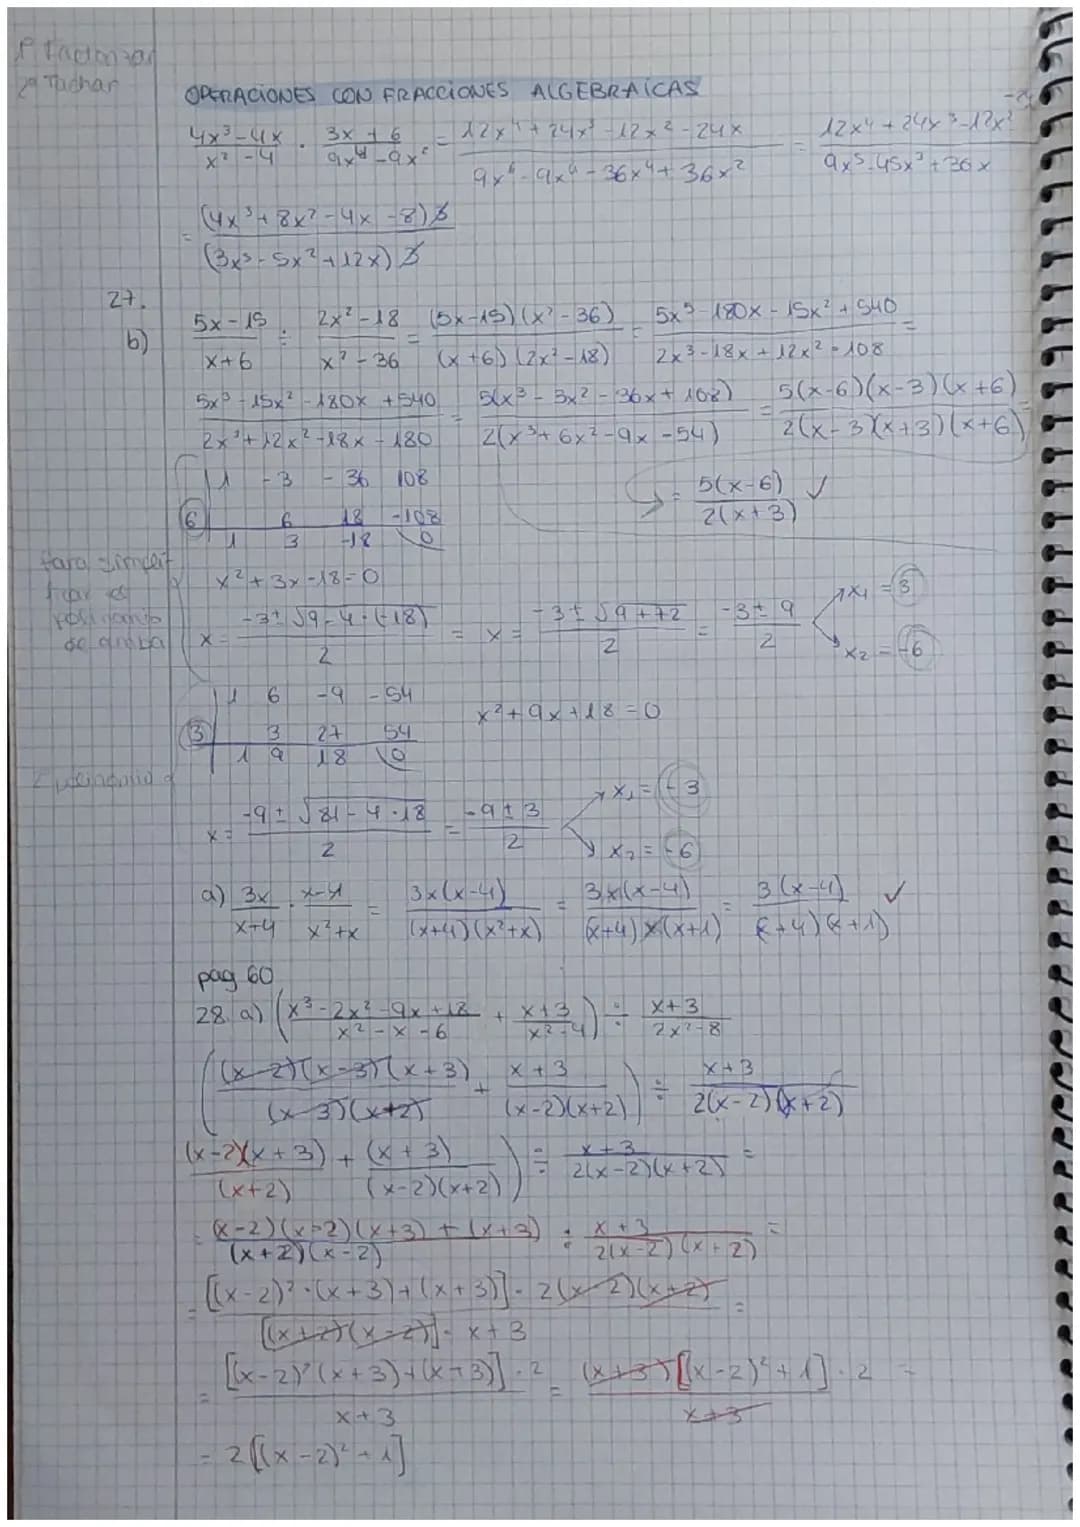 1º Factorizar
2º Tachar
OPERACIONES CON FRACCIONES ALGEBRAICAS
4x³-4x / x²-4 · 3x+6 / 9x⁴-9x² = 12x⁴+24x³-12x²-24x / 9x⁶-9x⁴-36x⁴+36x² = 12x⁴+24x³-12x²-24 / 9x⁵-45x³+36x
= (4x³+8x²-4x-8)3 / (3x⁵-5x²+12x)3
27.
b) 5x-15 / x+6 ÷ 2x²-18 / x²-36 = (5x-15)(x²-36) / (x+6)(2x²-18) = 5x³-180x-15x²+540 / 2x³-18x+12x²-108 =
5x³-15x²-180x+540 / 2x³+12x²-18x-180 = 5(x³-3x²-36x+108) / 2(x³+6x²-9x-54) = 5(x-6)(x-3)(x+6) / 2(x-3)(x+3)(x+6) =
1 -3 -36 108
6 6 18 -108
1 3 -18 0
= 5(x-6) / 2(x+3) ✓
Para simplifi
car el
polinomio
de arriba
x²+3x-18=0
x = -3±√9-4·(-18) / 2 = x = -3±√9+72 / 2 = -3±9 / 2 x₁=3 x₂=-6
1 6 -9 -54
3 3 27 54
1 9 18 0
x²+9x+18=0
x = -9±√81-4·18 / 2 = -9±3 / 2 x₁=-3 x₂=-6
a) 3x / x+4 · x-4 / x²+x = 3x(x-4) / (x+4)(x²+x) = 3x(x-4) / (x+4)x(x+1) = 3(x-4) / (x+4)(x+1) ✓
pag 60
28. a) (x³-2x²-9x+18 / x²-x-6 + x+3 / x²-4) ÷ x+3 / 2x²-8
((x-2)(x-3)(x+3) / (x-3)(x+2) + x+3 / (x-2)(x+2)) ÷ x+3 / 2(x-2)(x+2)
(x-2)(x+3) / (x+2) + (x+3) / (x-2)(x+2)) ÷ x+3 / 2(x-2)(x+2) =
= (x-2)(x-2)(x+3)+(x+3) / (x+2)(x-2) : x+3 / 2(x-2)(x+2) =
= [(x-2)²·(x+3)+(x+3)]·2(x-2)(x+2) / [(x+2)(x-2)]·x+3 =
= [(x-2)²(x+3)+(x+3)]·2 / x+3 = (x+3)[(x-2)²+1]·2 / x+3 =
= 2[(x-2)²+1]